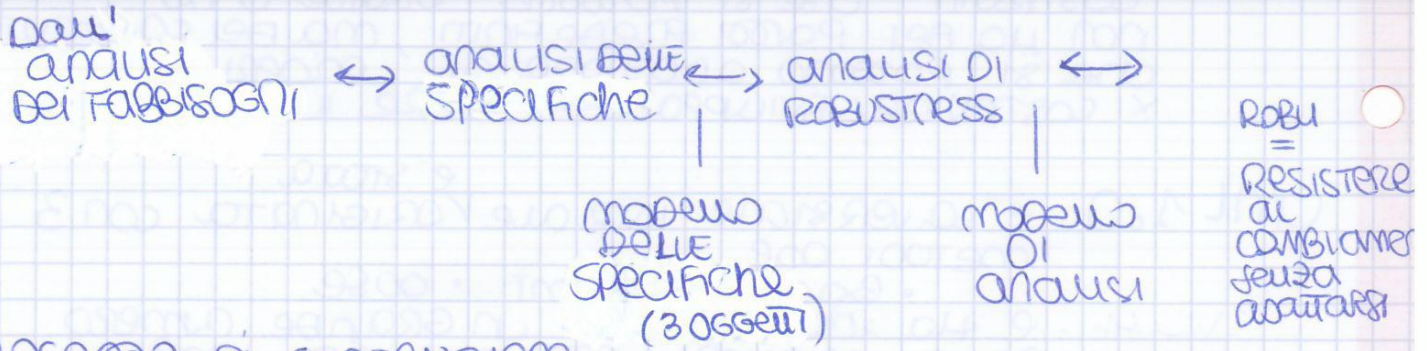 Dall'
analisi
dei FABBISOGNI
analisi delle
specifiche
analisi di
ROBUSTNESS
modello
delle
specifiche
(3 oggetti)
modello
di
analisi
ROBU
=
Resistere
ai
cambiamen
senza
adattarsi